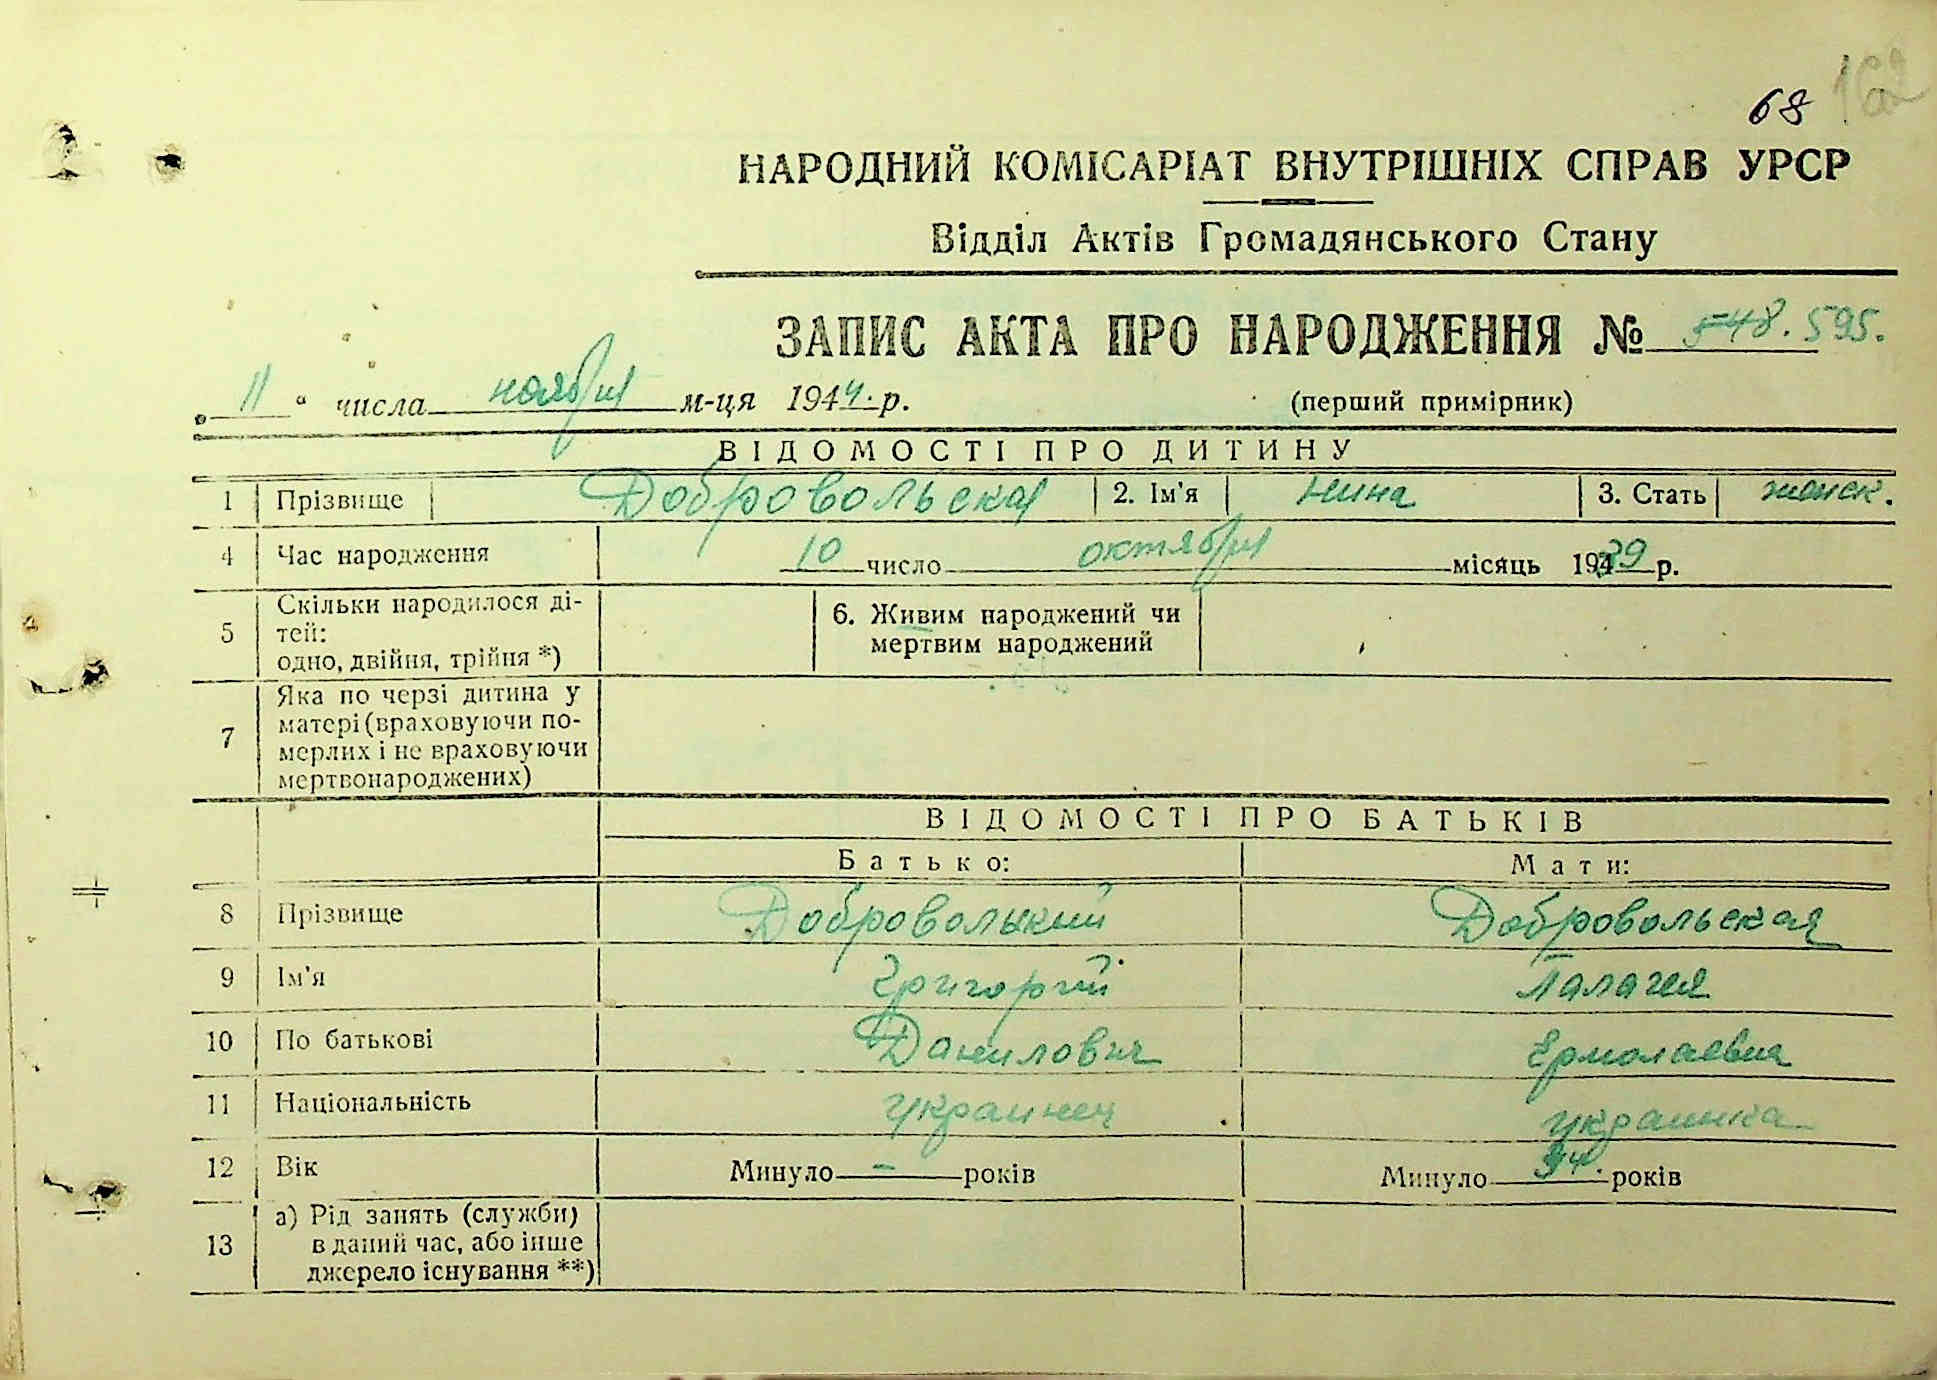 68 162
НАРОДНИЙ КОМІСАРІАТ ВНУТРІШНІХ СПРАВ УРСР
Відділ Актів Громадянського Стану
ЗАПИС АКТА ПРО НАРОДЖЕННЯ № 548. 595.
„ 11 “ числа ноября м-ця 1944. р. (перший примірник)
ВІДОМОСТІ ПРО ДИТИНУ
1 Прізвище Добровольская 2. Ім'я Нина 3. Стать женск.
4 Час народження 10 число октября місяць 1939 р.
5 Скільки народилося ді-
тей:
одно, двійня, трійня *)
6. Живим народжений чи
мертвим народжений
7 Яка по черзі дитина у
матері (враховуючи по-
мерлих і не враховуючи
мертвонароджених)
ВІДОМОСТІ ПРО БАТЬКІВ
Батько: Мати:
8 Прізвище Добровольский Добровольская
9 Ім'я Григорий Палагея
10 По батькові Данилович Ермолаевна
11 Національність украинец украинка
12 Вік Минуло - років Минуло 34. років
13 а) Рід занять (служби)
в даний час, або інше
джерело існування **)